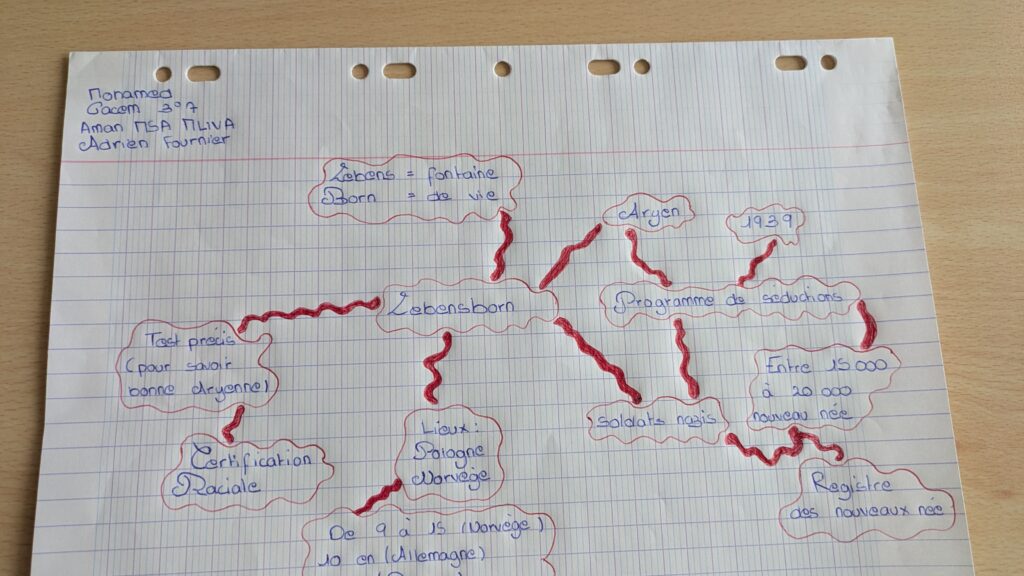 Mohamed
Gacem 3°7
Aman MSA MLIVA
Adrien Fournier
Lebens = fontaine
Born = de vie
Aryen
1939
Lebensborn
Programme de séductions
Test précis
(pour savoir
bonne Aryenne)
Entre 15 000
à 20 000
nouveau née
Lieux :
Pologne
Norvège
soldats nazis
Certification
Raciale
Registre
des nouveaux née
De 9 à 15 (Norvège)
10 en (Allemagne)